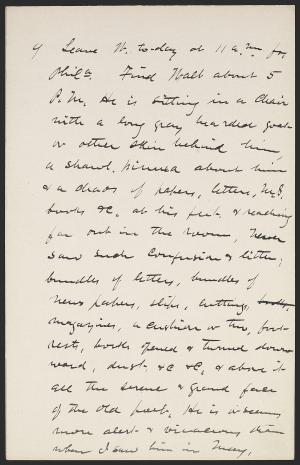 9 Leave N. to-day at 11 a.m. for
Phila. Find Walt about 5
P.M. He is sitting in a chair
with a long gray bearded goat
or other skin behind him,
a shawl, about him
& a chaos of papers, letters, MS,
books &c, at his feet, & reaching
far out in the room, Never
saw such confusion & litter;
bundles of letters, bundles of
newspapers, slips, cuttings,
magazines, a cushion or two, foot-
rests, books opened & turned down-
ward, dust, &c &c, & above it
all the serene & grand face
of the old poet. He is
more alert & vivacious than
when I saw him in